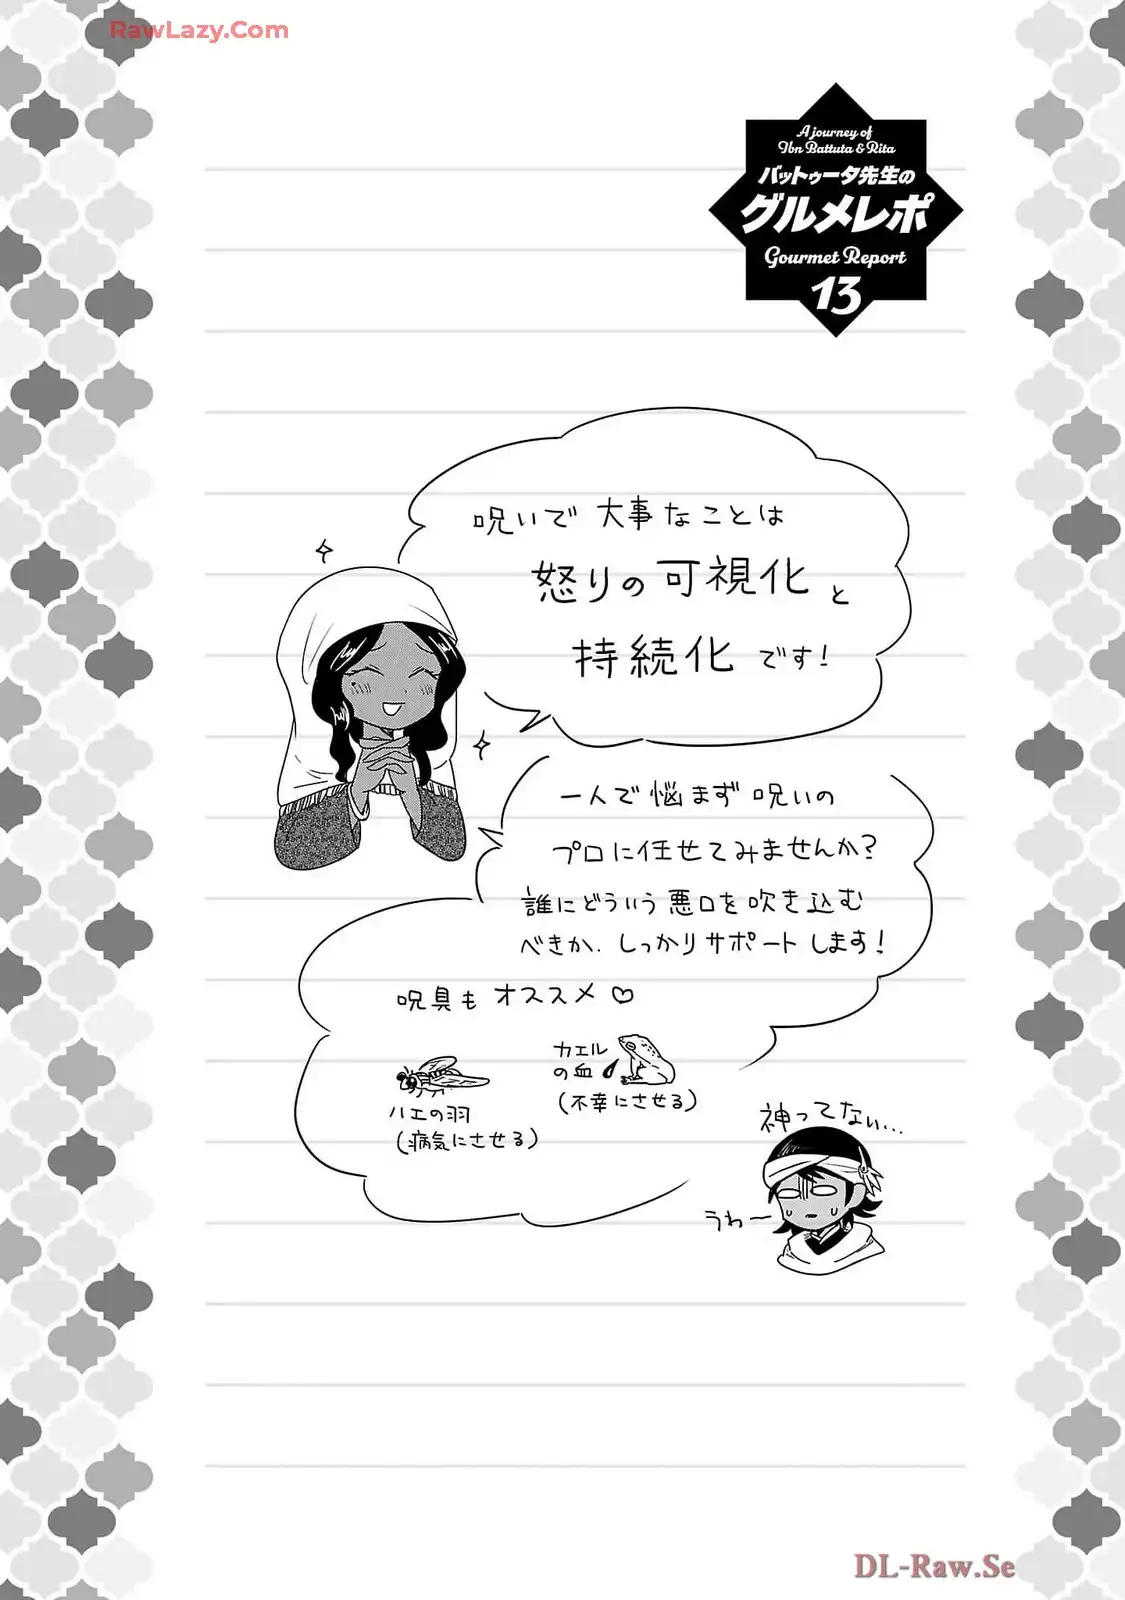 RawLazy.Com
A journey of
Ibn Battuta & Rita
バットゥータ先生の
グルメレポ
Gourmet Report
13
呪いで大事なことは
怒りの可視化と
持続化です!
一人で悩まず呪いの
プロに任せてみませんか?
誰にどういう悪口を吹き込む
べきか、しっかりサポートします!
呪具もオススメ♡
カエル
の血
(不幸にさせる)
ハエの羽
(病気にさせる)
神ってない…
うわー
DL-Raw.Se